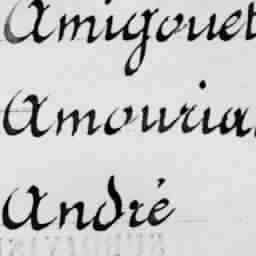 Amigouet
Amouria
André